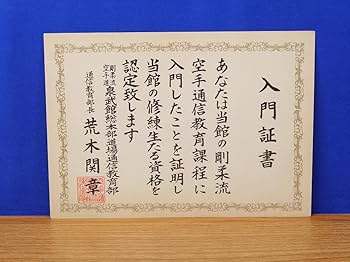 入門証書
あなたは当館の剛柔流
空手通信教育課程に
入門したことを証明し
当館の修練生たる資格を
認定致します
剛柔流空手道泉武館総本部道場通信教育部
通信教育部長 荒木関章